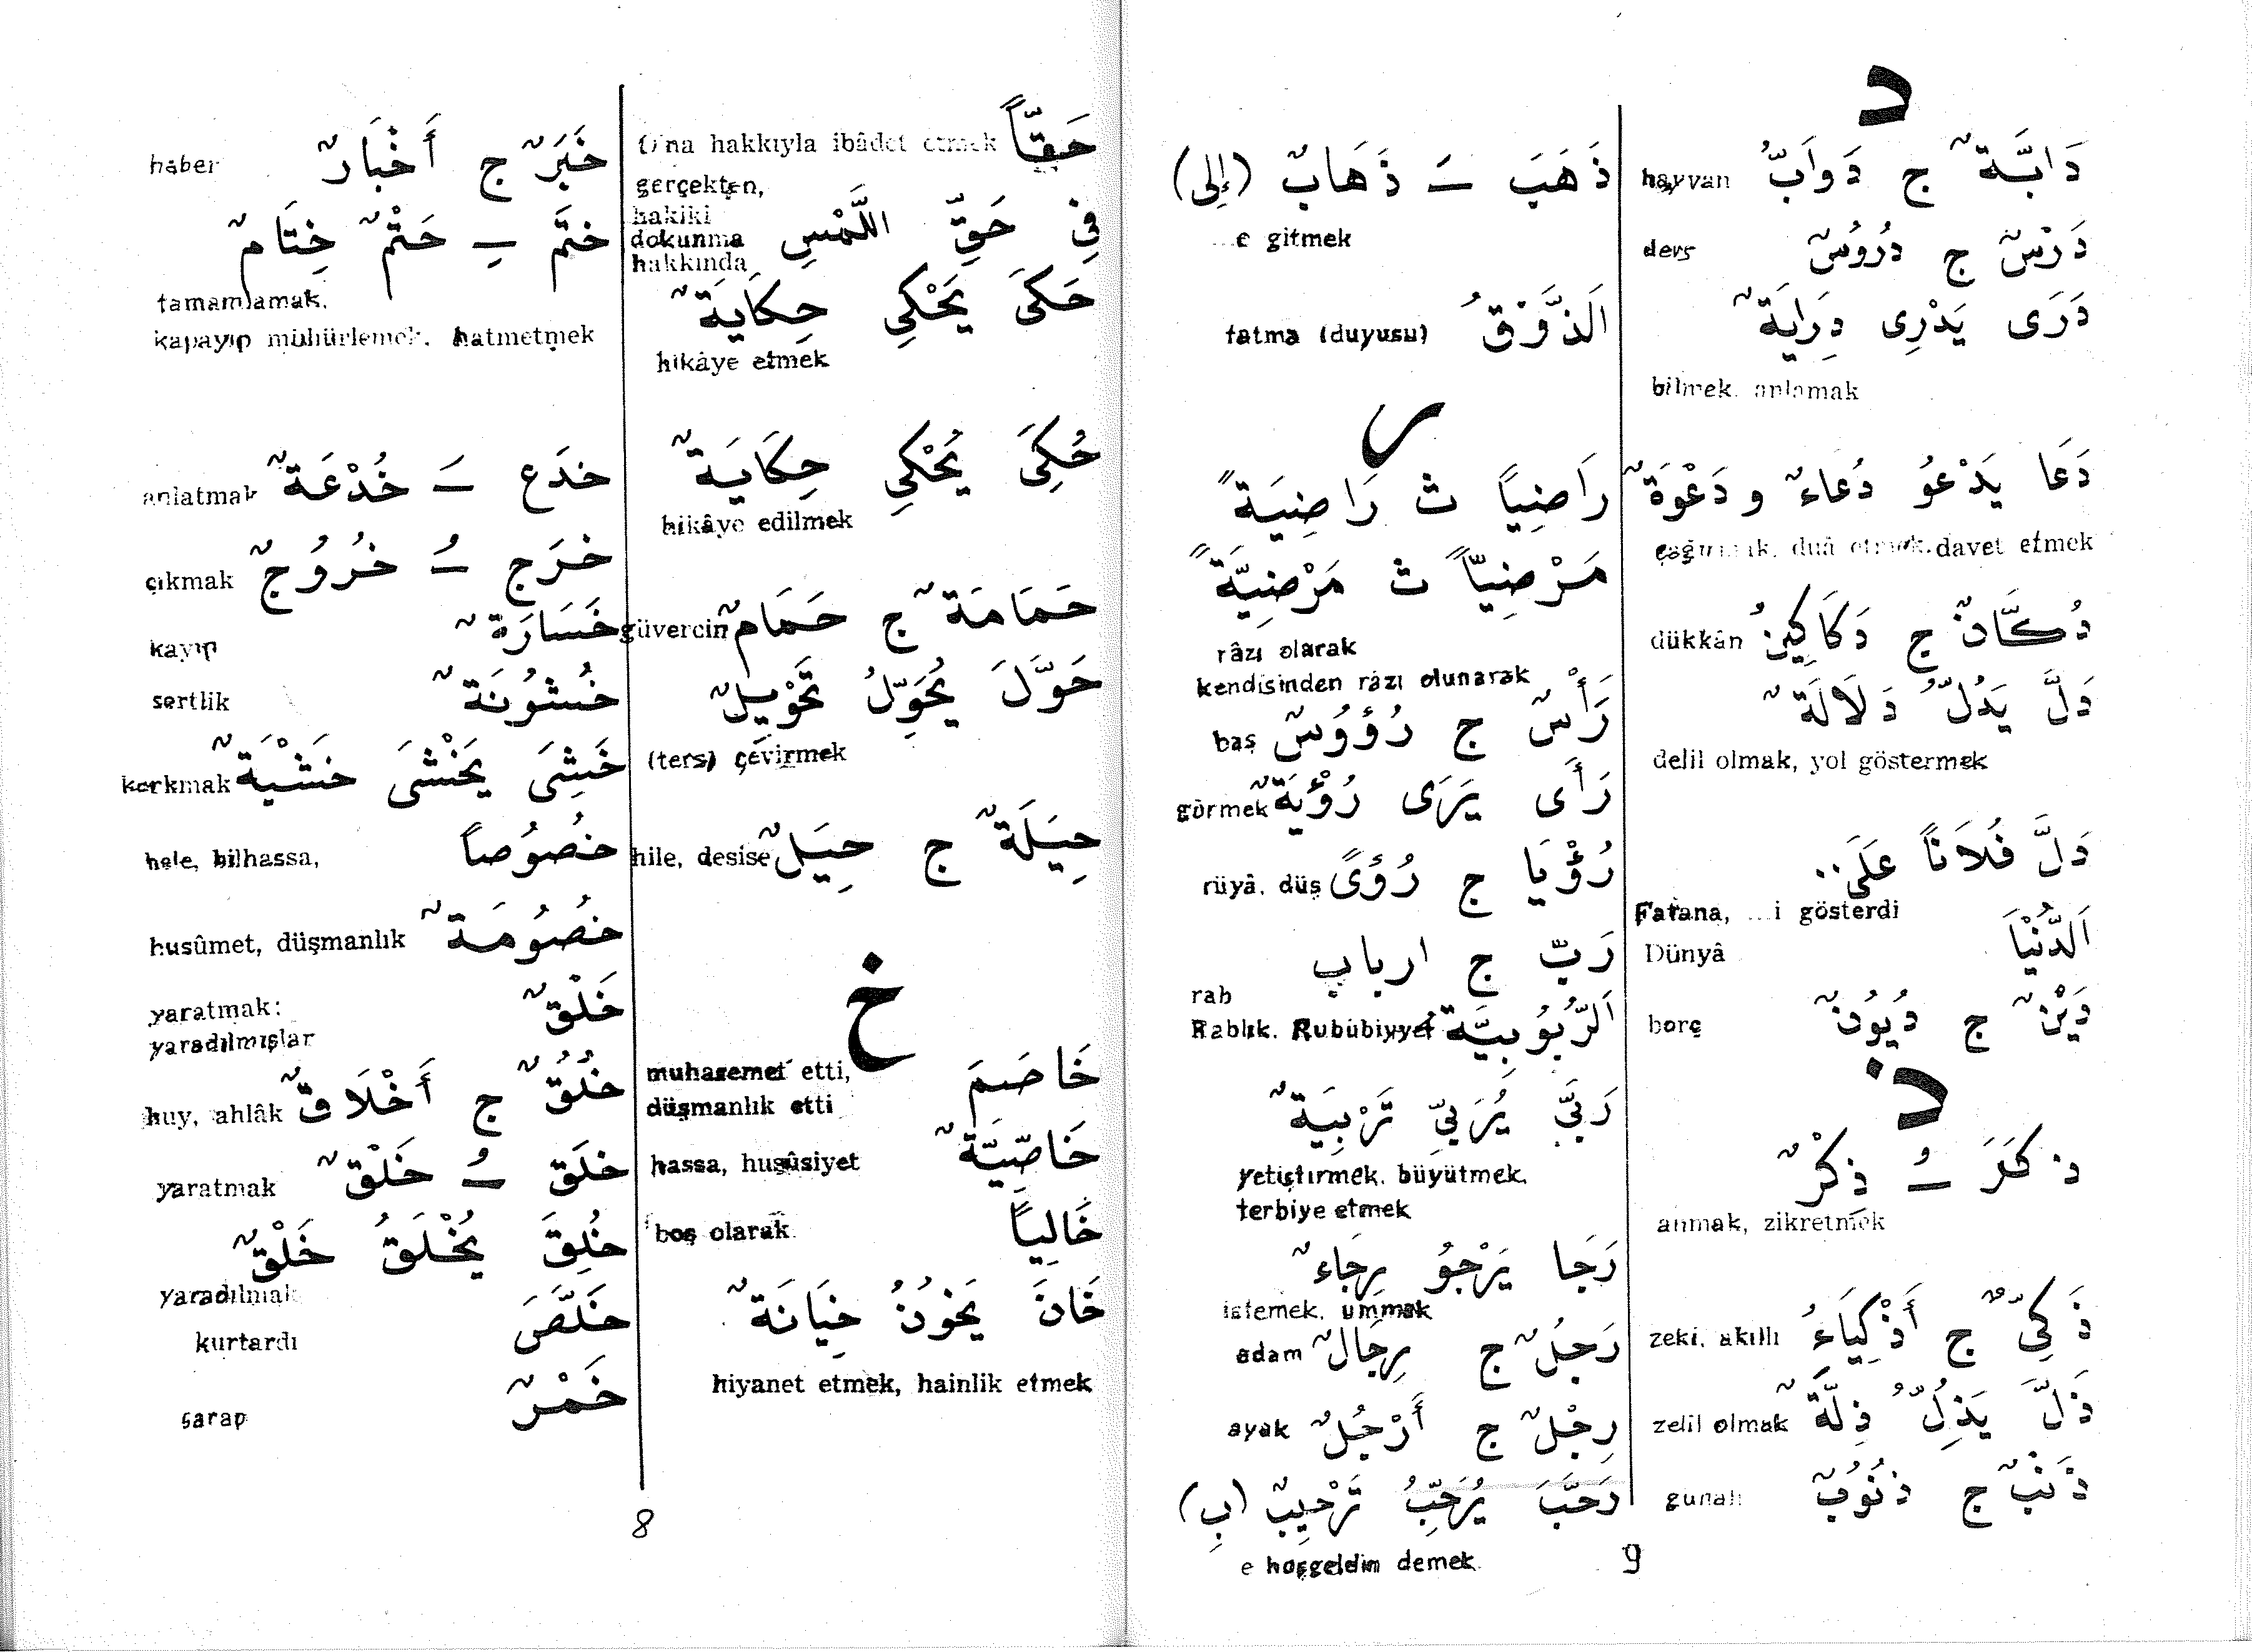 حَقّاً
O'na hakkıyla ibâdet etmek
gerçekten,
hakiki
فِي حَقِّ اللَّمْسِ
dokunma
hakkında
حَكَىَ يَحْكِي حِكَايَةٌ
hikâye etmek
حُكِىَ يُحْكِي حِكَايَةٌ
hikâye edilmek
حَمَامَةٌ ج حَمَامٌ güvercin
حَوَّلَ يُحَوِّلُ تَحْوِيلٌ
(ters) çevirmek
حِيَلَةٌ ج حِيَلٌ hile, desise
خ
خَاصَمَ
muhasemet etti,
düşmanlık etti
خَاصِّيَّةٌ hassa, husûsiyet
خَالِياً boş olarak
خَانَ يَخوُنُ خِيَانَةٌ
hiyanet etmek, hainlik etmek
خَبَرٌ ج أَخْبَارٌ haber
ختَمَّ ــِ خَتْمٌ خِتَامٌ
tamamlamak,
kapayıp mühürlemek, hatmetmek
خدَع ــَ خُدْعَةٌ anlatmak
خرَج ــُ خُرُوُجٌ çıkmak
خَسَارَةٌ kayıp
خُشوُنَةٌ sertlik
خَشِىَ يَخْشَى خَشْيَةٌ korkmak
خصُوُصاً hele, bilhassa,
خصُوُمَةٌ husûmet, düşmanlık
خَلْقٌ
yaratmak:
yaradılmışlar
خُلُقٌ ج أَخْلَاقٌ huy, ahlâk
خلَق ــُ خَلْقٌ yaratmak
خُلِقَ يُخْلَقُ خَلْقٌ
yaradılmak
خَلَّصَ kurtardı
خَمْرٌ şarap
8
د
دَابَّةٌ ج دَوَابُّ hayvan
دَرْسٌ ج دُرُوُسٌ ders
دَرَى يَدْرِى دِرَايَةٌ
bilmek, anlamak
دَعَا يَدْعوُ دُعاءٌ و دَعْوَةٌ
çağırmak, duâ etmek, davet etmek
دُكَّانٌ ج دَكَاكِينُ dükkân
دَلَّ يَدُلُّ دَلَالَةٌ
delil olmak, yol göstermek
دَلَّ فُلَاناً عَلَى..
Falana, ...i gösterdi
اَلدُّنْيَا Dünyâ
دَيْنٌ ج دُيوُنٌ borç
ذ
ذكَرَ ــُ ذِكْرٌ
anmak, zikretmek
ذَكِىٌّ ج أَذْكِيَاءُ zeki, akıllı
ذَلَّ يَذِلُّ ذِلَّةٌ zelil olmak
ذَنْبٌ ج ذنُوُبٌ gunah
ذَهَبَ ــَ ذَهَابٌ (إِلى)
...e gitmek
اَلذَّوْقُ tatma (duyusu)
ر
رَاضِياً ث رَاضِيَةً
مَرْضِيّاً ث مَرْضِيَّةً
râzı olarak
kendisinden râzı olunarak
رَأْسٌ ج رُؤوُسٌ baş
رَأَى يَرَى رُؤْيَةٌ görmek
رُؤْيَا ج رُؤىً rüyâ, düş
رَبٌّ ج ارباب
rab
اَلرُّبوُبِيَّةُ Rablık, Rubûbiyyet
رَبَّىَ يُرَبِّي تَرْبِيَةٌ
yetiştirmek, büyütmek,
terbiye etmek
رَجَا يَرْجوُ رِجَاءٌ
istemek, ummak
رَجُلٌ ج رِجَالٌ adam
رِجْلٌ ج أَرْجُلٌ ayak
رَحَّبَ يُرَحِّبُ تَرْحِيبٌ (بِ)
e hoşgeldin demek
9